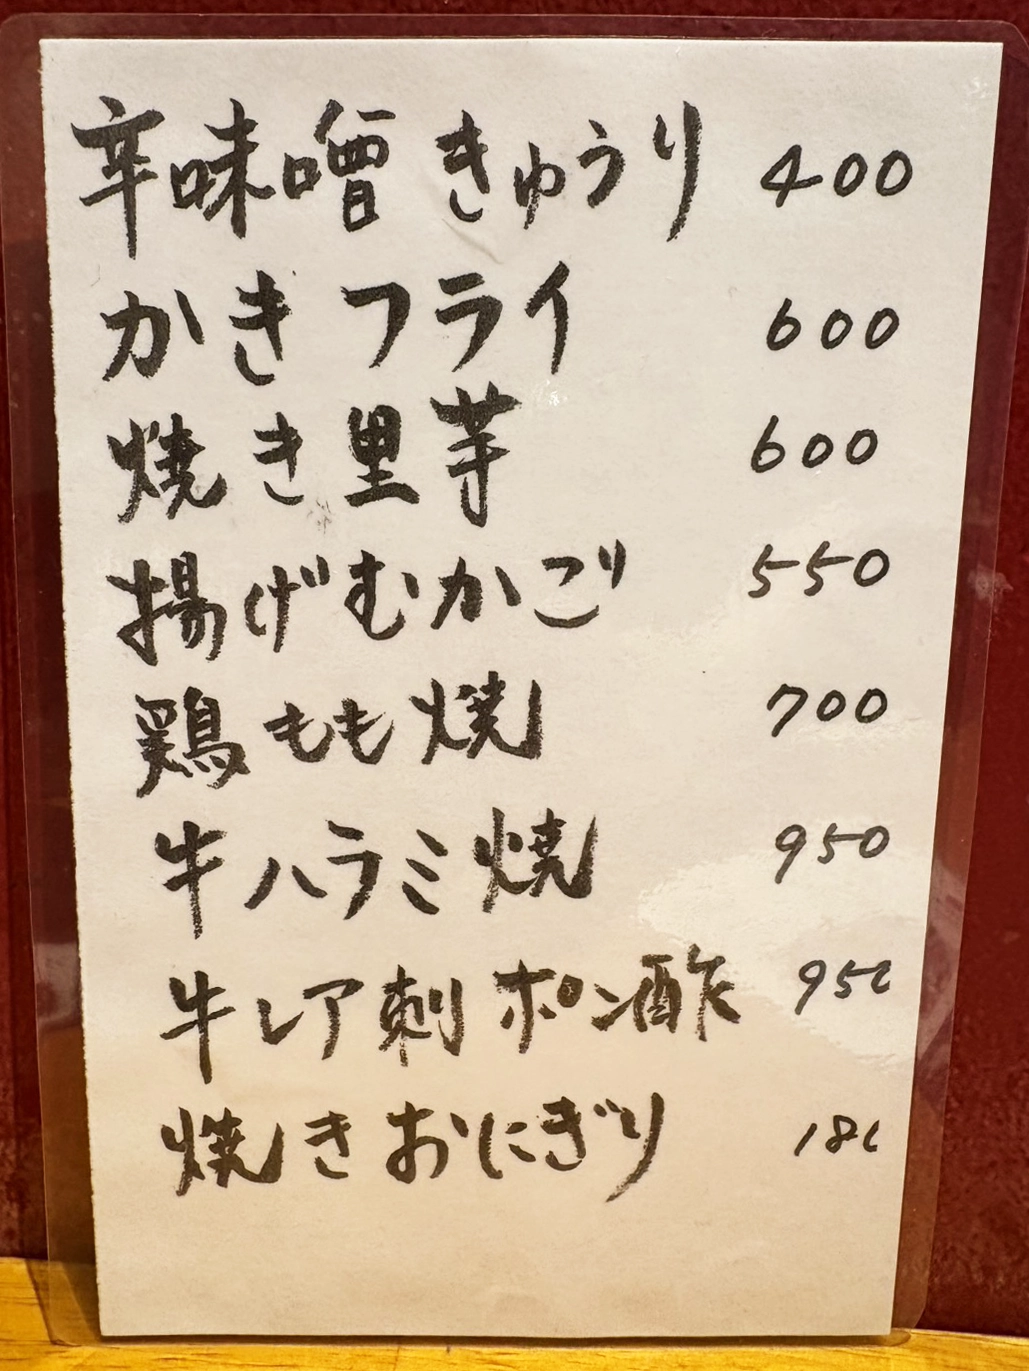 辛味噌きゅうり 400
かきフライ 600
焼き里芋 600
揚げむかご 550
鶏もも焼 700
牛ハラミ焼 950
牛レア刺 ポン酢 950
焼きおにぎり 180